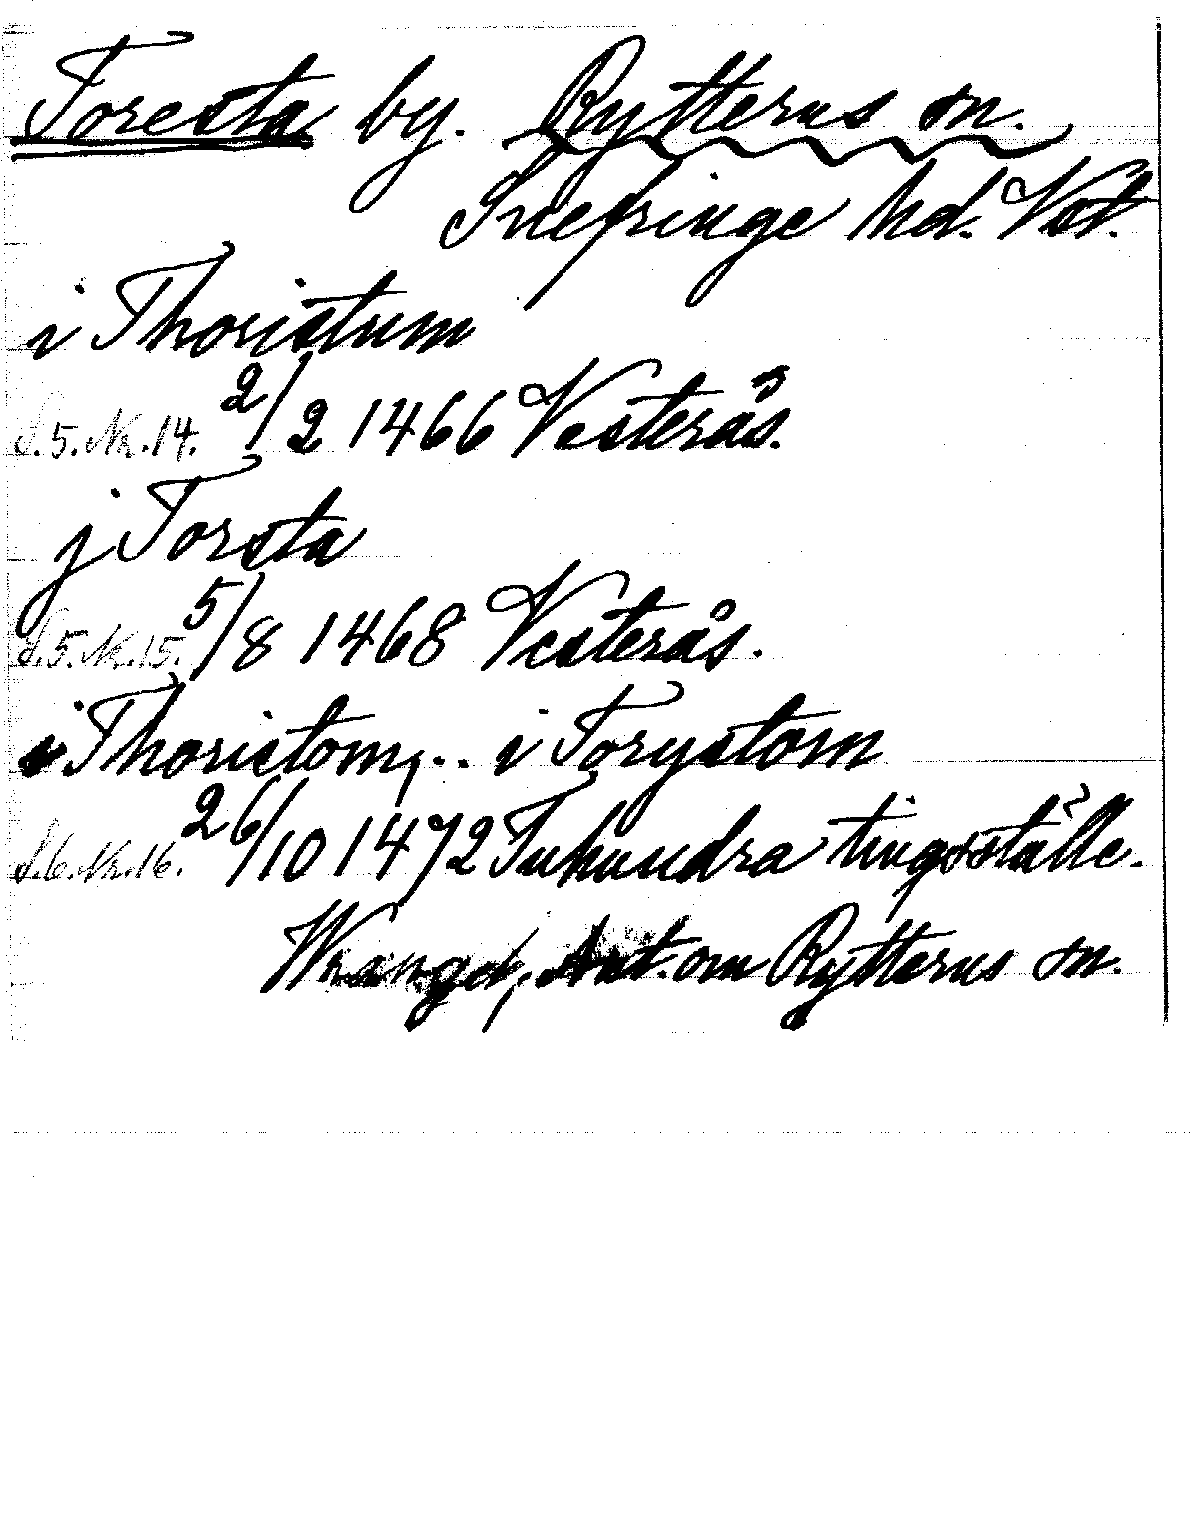 Toresta by. Rytterns sn.
Snefringe hd. Vstl.
i Thoristum
S.5. Nr. 14. 2/2 1466 Vesterås.
j Torsta
S.5. Nr. 15. 5/8 1468 Vesterås.
i Thoristom, .. i Torystom
S.6. Nr. 16. 26/10 1472 Tuhundra tingsställe.
Wrangel, Ant. om Rytterns sn.